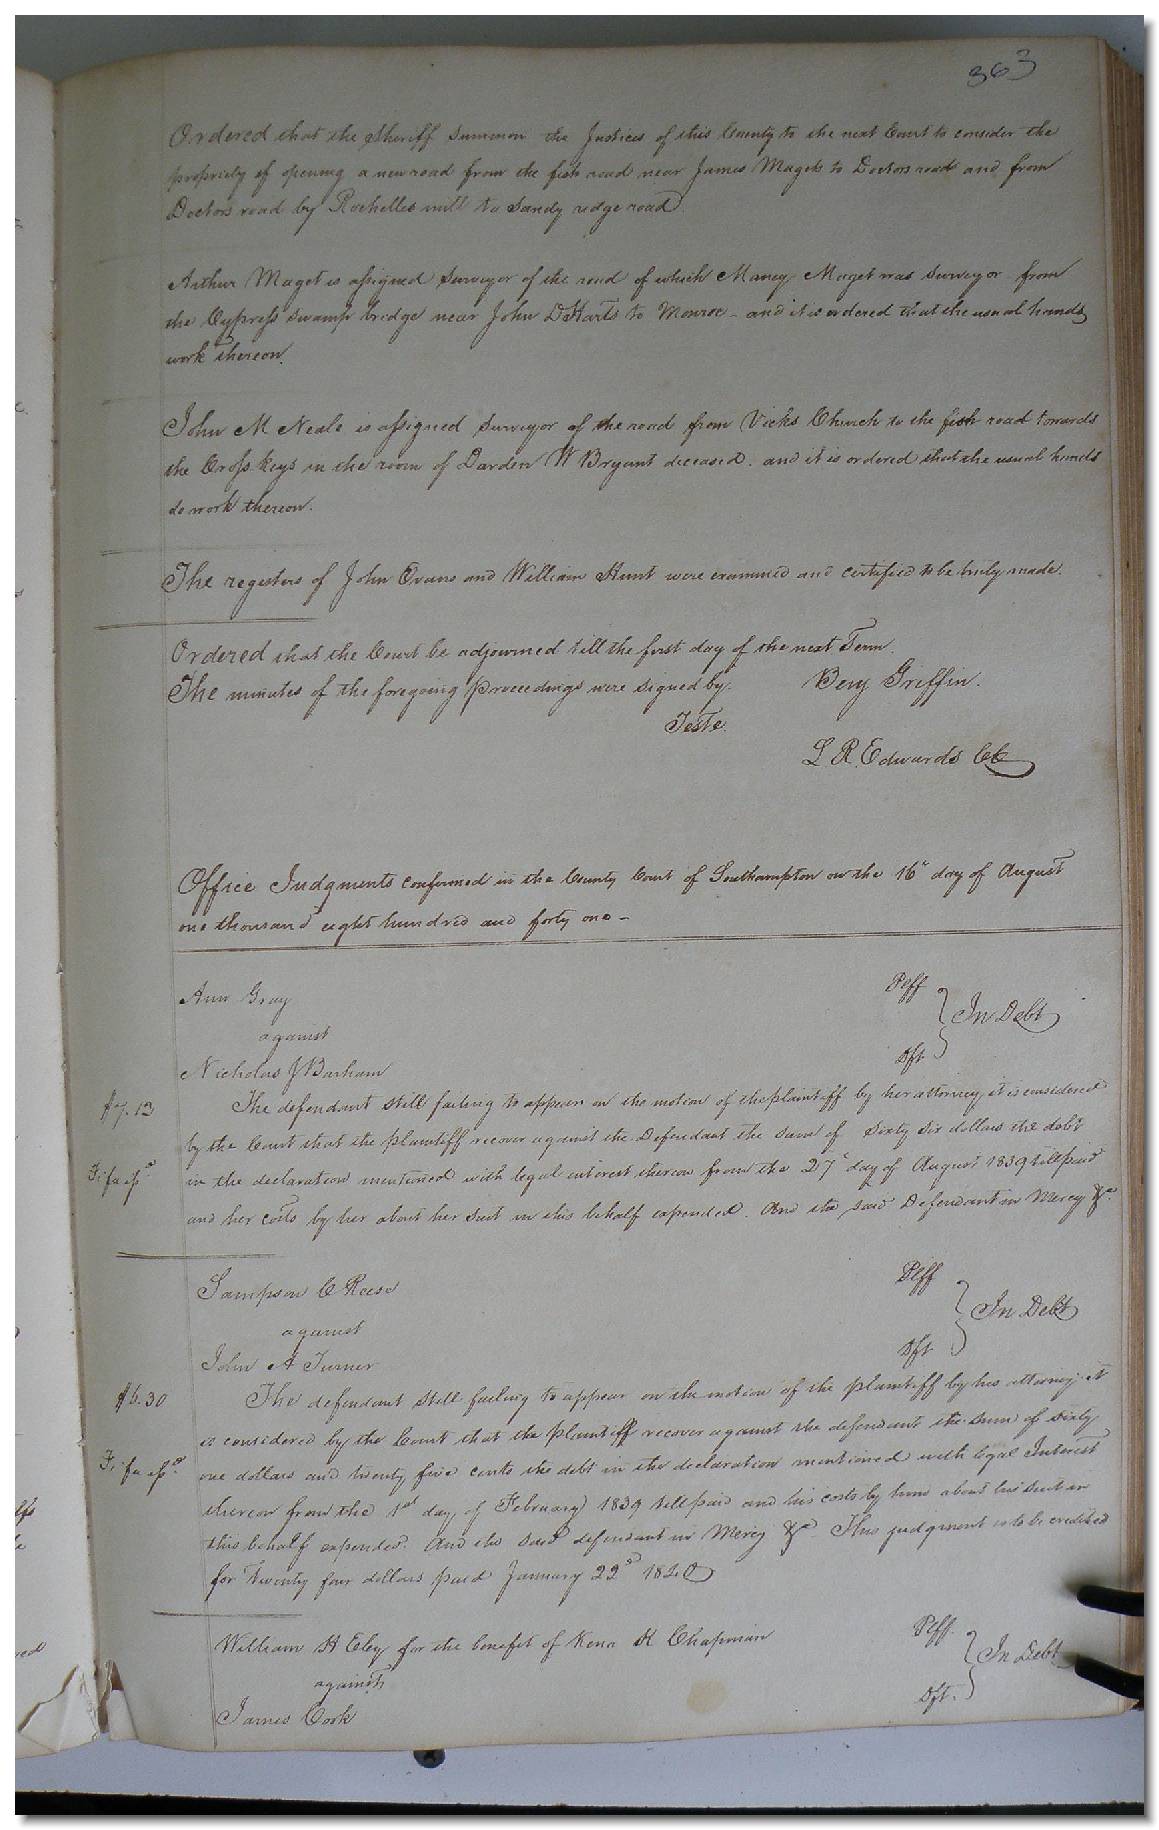 363
Ordered that the Sheriff summon the Justices of this County to the next Court to consider the
propriety of opening a new road from the fish road near James Magets to Doctors road and from
Doctors road by Rochelles mill to Sandy ridge road
Arthur Maget is assigned Surveyor of the road of which Maney Maget was surveyor from
the Cypress swamp bridge near John D Harts to Monroe - and it is ordered that the usual hands
work thereon.
John M Neale is assigned Surveyor of the road from Vicks Church to the fish road towards
the Cross keys in the room of Darden W Bryant deceased. and it is ordered that the usual hands
do work thereon.
The registers of John Evans and William Hunt were examined and certified to be truly made.
Ordered that the Court be adjourned till the first day of the next Term.
The minutes of the foregoing proceedings were signed by. Benj Griffin.
Teste.
L R. Edwards CC
Office Judgments confirmed in the County Court of Southampton on the 16th day of August
one thousand eight hundred and forty one -
Ann Gray Plff
against In Debt
Nicholas J Barham Dft
$7.13 The defendant still failing to appear on the motion of the plaintiff by her attorney it is considered
by the Court that the plaintiff recover against the Defendant the sum of Sixty six dollars the debt
Fi fa issd in the declaration mentioned with legal interest thereon from the 27th day of August 1839 till paid
and her costs by her about her suit in this behalf expended. And the said Defendant in Mercy &c.
Sampson C Reese Plff
against In Debt
John A Turner Dft
$6.30 The defendant still failing to appear on the motion of the plaintiff by his attorney it
is considered by the Court that the plaintiff recover against the defendant the sum of sixty
Fi fa issd. one dollars and twenty five cents the debt in the declaration mentioned with legal Interest
thereon from the 1st day of February 1839 till paid and his costs by him about his suit in
this behalf expended. And the said defendant in Mercy &c. This judgment is to be credited
for Twenty four dollars paid January 22d 1840
William H Eley for the benefit of Kena H Chapman Plff.
against In Debt
James Cook Dft.